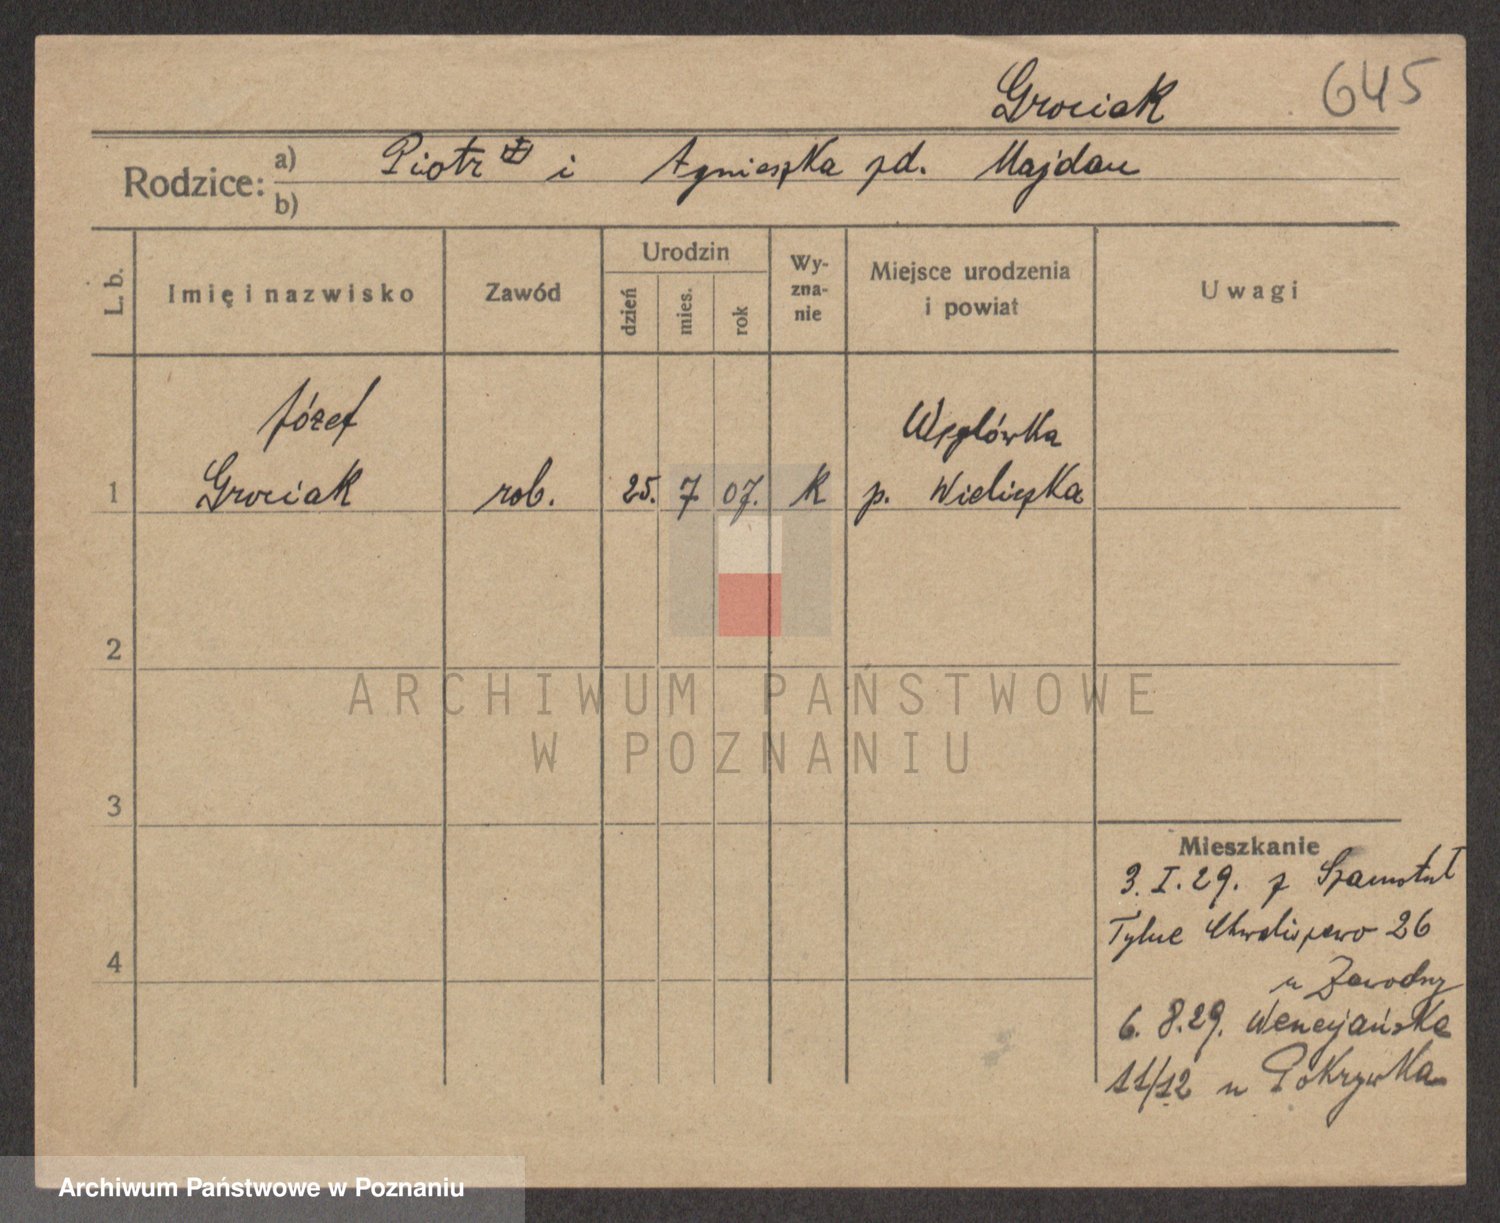 Grociak 645
Rodzice: a) Piotr i Agnieszka zd. Majdan
b)
L. b. Imię i nazwisko Zawód Urodzin dzień mies. rok Wy-zna-nie Miejsce urodzenia i powiat Uwagi
Józef Węglówka
1 Grociak rob. 25. 7 07. k p. Wieliczka
2
ARCHIWUM PAŃSTWOWE
W POZNANIU
3
4
Mieszkanie
3. I. 29. z Szamotuł
Tylne Chwaliszewo 26
u Zawodny
6. 8. 29. Wenecjańska
11/12 u Pokrzywka
Archiwum Państwowe w Poznaniu